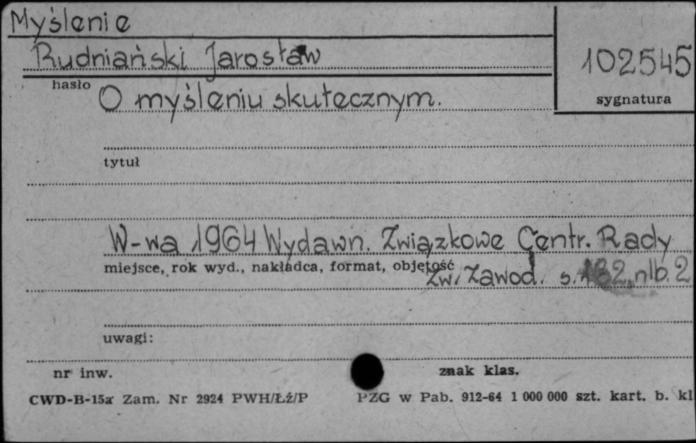 Myślenie
Rudniański Jarosław
102545
hasło
sygnatura
O myśleniu skutecznym.
tytuł
W-wa 1964 Wydawn. Związkowe Centr. Rady
miejsce, rok wyd., nakładca, format, objętość
Zw. Zawod. s. 182, nlb. 2
uwagi:
nr inw.
znak klas.
CWD-B-15a Zam. Nr 2924 PWH/Łź/P
PZG w Pab. 912-64 1 000 000 szt. kart. b. kl